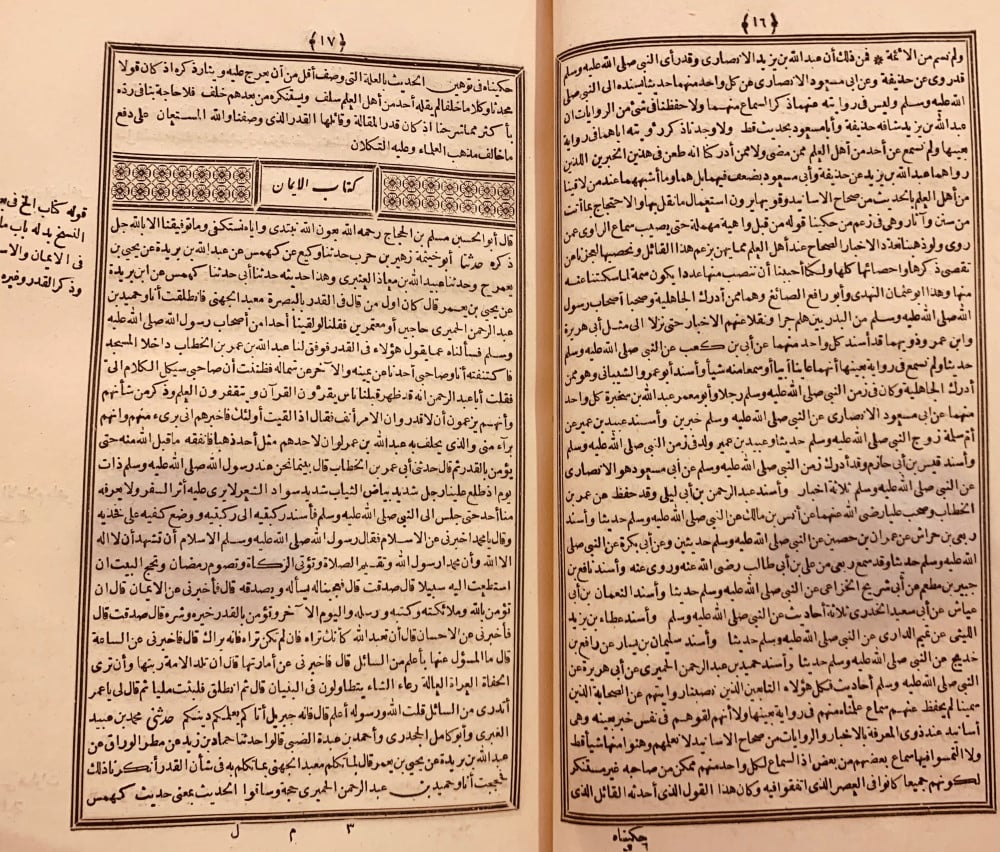 ﴿١٦﴾
ولم نسم من الائمة * فمن ذلك أن عبد الله بن يزيد الانصارى وقد رأى النبى صلى الله عليه وسلم
قد روى عن حذيفة وعن أبى مسعود الانصارى عن كل واحد منهما حديثا يسنده الى النبى صلى
الله عليه وسلم وليس فى روايته عنهما ذكر السماع منهما ولا حفظنا فى شئ من الروايات ان
عبد الله بن يزيد شافه حذيفة وأبا مسعود بحديث قط ولا وجدنا ذكر رؤيته اياهما فى رواية
بعينها ولم نسمع عن أحد من أهل العلم ممن مضى ولا ممن أدركنا انه طعن فى هذين الخبرين اللذين
رواهما عبد الله بن يزيد عن حذيفة وأبى مسعود بضعف فيهما بل هما وما أشبههما عند من لاقينا
من أهل العلم بالحديث من صحاح الاسانيد وقويها يرون استعمال ما نقل بها والاحتجاج بما أتت
من سنن وآثار وهى فى زعم من حكينا قوله من قبل واهية مهملة حتى يصيب سماع الراوى عمن
روى ولو ذهبنا نعدد الاخبار الصحاح عند أهل العلم مما يهن بزعم هذا القائل ونحصيها لعجزنا عن
تقصى ذكرها واحصائها كلها ولكنا أحببنا أن ننصب منها عددا يكون سمة لما سكتنا عنه
منها وهذا أبو عثمان النهدى وأبو رافع الصائغ وهما ممن أدرك الجاهلية وصحبا أصحاب رسول
الله صلى الله عليه وسلم من البدريين هلم جرا ونقلا عنهم الاخبار حتى نزلا الى مثل أبى هريرة
وابن عمر وذويهما قد أسند كل واحد منهما عن أبى بن كعب عن النبى صلى الله عليه وسلم
حديثا ولم نسمع فى رواية بعينها أنهما عاينا أبيا أو سمعا منه شيأ وأسند أبو عمرو الشيبانى وهو ممن
أدرك الجاهلية وكان فى زمن النبى صلى الله عليه وسلم رجلا وأبو معمر عبد الله بن سخبرة كل واحد
منهما عن أبى مسعود الانصارى عن النبى صلى الله عليه وسلم خبرين وأسند عبيد بن عمير عن
أم سلمة زوج النبى صلى الله عليه وسلم حديثا وعبيد بن عمير ولد فى زمن النبى صلى الله عليه وسلم
وأسند قيس بن أبى حازم وقد أدرك زمن النبى صلى الله عليه وسلم عن أبى مسعود هو الانصارى
عن النبى صلى الله عليه وسلم ثلاثة أخبار وأسند عبد الرحمن بن أبى ليلى وقد حفظ عن عمر بن
الخطاب وصحب عليا رضى الله عنهما عن أنس بن مالك عن النبى صلى الله عليه وسلم حديثا وأسند
ربعى بن حراش عن عمران بن حصين عن النبى صلى الله عليه وسلم حديثين وعن أبى بكرة عن النبى صلى
الله عليه وسلم حديثا وقد سمع ربعى من على بن أبى طالب رضى الله عنه وروى عنه وأسند نافع بن
جبير بن مطعم عن أبى شريح الخزاعى عن النبى صلى الله عليه وسلم حديثا وأسند النعمان بن أبى
عياش عن أبى سعيد الخدرى ثلاثة أحاديث عن النبى صلى الله عليه وسلم وأسند عطاء بن يزيد
الليثى عن تميم الدارى عن النبى صلى الله عليه وسلم حديثا وأسند سليمان بن يسار عن رافع بن
خديج عن النبى صلى الله عليه وسلم حديثا وأسند حميد بن عبد الرحمن الحميرى عن أبى هريرة عن
النبى صلى الله عليه وسلم أحاديث فكل هؤلاء التابعين الذين نصبنا روايتهم عن الصحابة الذين
سميناهم لم يحفظ عنهم سماع علمناه منهم فى رواية بعينها ولا أنهم لقوهم فى نفس خبر بعينه وهى
أسانيد عند ذوى المعرفة بالاخبار والروايات من صحاح الاسانيد لا نعلمهم وهنوا منها شيأ قط
ولا التمسوا فيها سماع بعضهم من بعض اذ السماع لكل واحد منهم ممكن من صاحبه غير مستنكر
لكونهم جميعا كانوا فى العصر الذى اتفقوا فيه وكان هذا القول الذى أحدثه القائل الذى
حكيناه
﴿١٧﴾
حكيناه فى توهين الحديث بالعلة التى وصف أقل من أن يعرج عليه ويثار ذكره اذ كان قولا
محدثا وكلاما خلفا لم يقله أحد من أهل العلم سلف ويستنكره من بعدهم خلف فلا حاجة بنا فى رده
بأكثر مما شرحنا اذ كان قدر المقالة وقائلها القدر الذى وصفناه والله المستعان على دفع
ما خالف مذهب العلماء وعليه التكلان
كتاب الايمان
قال أبو الحسين مسلم بن الحجاج رحمه الله بعون الله نبتدى واياه نستكفى وما توفيقنا الا بالله جل
ذكره حدثنا أبو خيثمة زهير بن حرب حدثنا وكيع عن كهمس عن عبد الله بن بريدة عن يحيى بن
يعمر ح وحدثنا عبيد الله بن معاذ العنبرى وهذا حديثه حدثنا أبى حدثنا كهمس عن ابن بريدة
عن يحيى بن يعمر قال كان أول من قال فى القدر بالبصرة معبد الجهنى فانطلقت أنا وحميد بن
عبد الرحمن الحميرى حاجين أو معتمرين فقلنا لو لقينا أحدا من أصحاب رسول الله صلى الله عليه
وسلم فسألناه عما يقول هؤلاء فى القدر فوفق لنا عبد الله بن عمر بن الخطاب داخلا المسجد
فاكتنفته أنا وصاحبى أحدنا عن يمينه والآخر عن شماله فظننت أن صاحبى سيكل الكلام الى
فقلت أبا عبد الرحمن انه قد ظهر قبلنا ناس يقرؤن القرآن ويتقفرون العلم وذكر من شأنهم
وأنهم يزعمون أن لا قدر وان الامر أنف فقال اذا لقيت أولئك فاخبرهم انى برىء منهم وانهم
برآء منى والذى يحلف به عبد الله بن عمر لو ان لاحدهم مثل أحد ذهبا فانفقه ما قبل الله منه حتى
يؤمن بالقدر ثم قال حدثنى أبى عمر بن الخطاب قال بينما نحن عند رسول الله صلى الله عليه وسلم ذات
يوم اذ طلع علينا رجل شديد بياض الثياب شديد سواد الشعر لا يرى عليه أثر السفر ولا يعرفه
منا أحد حتى جلس الى النبى صلى الله عليه وسلم فأسند ركبتيه الى ركبتيه ووضع كفيه على فخذيه
وقال يا محمد اخبرنى عن الاسلام فقال رسول الله صلى الله عليه وسلم الاسلام أن تشهد أن لا اله
الا الله وأن محمدا رسول الله وتقيم الصلاة وتؤتى الزكاة وتصوم رمضان وتحج البيت ان
استطعت اليه سبيلا قال صدقت قال فعجبنا له يسأله ويصدقه قال فأخبرنى عن الايمان قال ان
تؤمن بالله وملائكته وكتبه ورسله واليوم الآخر وتؤمن بالقدر خيره وشره قال صدقت قال
فأخبرنى عن الاحسان قال أن تعبد الله كأنك تراه فان لم تكن تراه فانه يراك قال فاخبرنى عن الساعة
قال ما المسؤل عنها بأعلم من السائل قال فاخبرنى عن أمارتها قال ان تلد الامة ربتها وأن ترى
الحفاة العراة العالة رعاء الشاء يتطاولون فى البنيان قال ثم انطلق فلبثت مليا ثم قال لى يا عمر
أتدرى من السائل قلت الله ورسوله أعلم قال فانه جبريل أتاكم يعلمكم دينكم حدثنى محمد بن عبيد
الغبرى وأبو كامل الجحدرى وأحمد بن عبدة الضبى قالوا حدثنا حماد بن زيد عن مطر الوراق عن
عبد الله بن بريدة عن يحيى بن يعمر قال لما تكلم معبد الجهنى بما تكلم به فى شأن القدر أنكرنا ذلك
فحججت أنا وحميد بن عبد الرحمن الحميرى حجة وساقوا الحديث بمعنى حديث كهمس
٣ م ل
قوله كتاب الخ فى
النسخ بدله باب ما
فى الايمان والاس
وذكر القدر وغيره